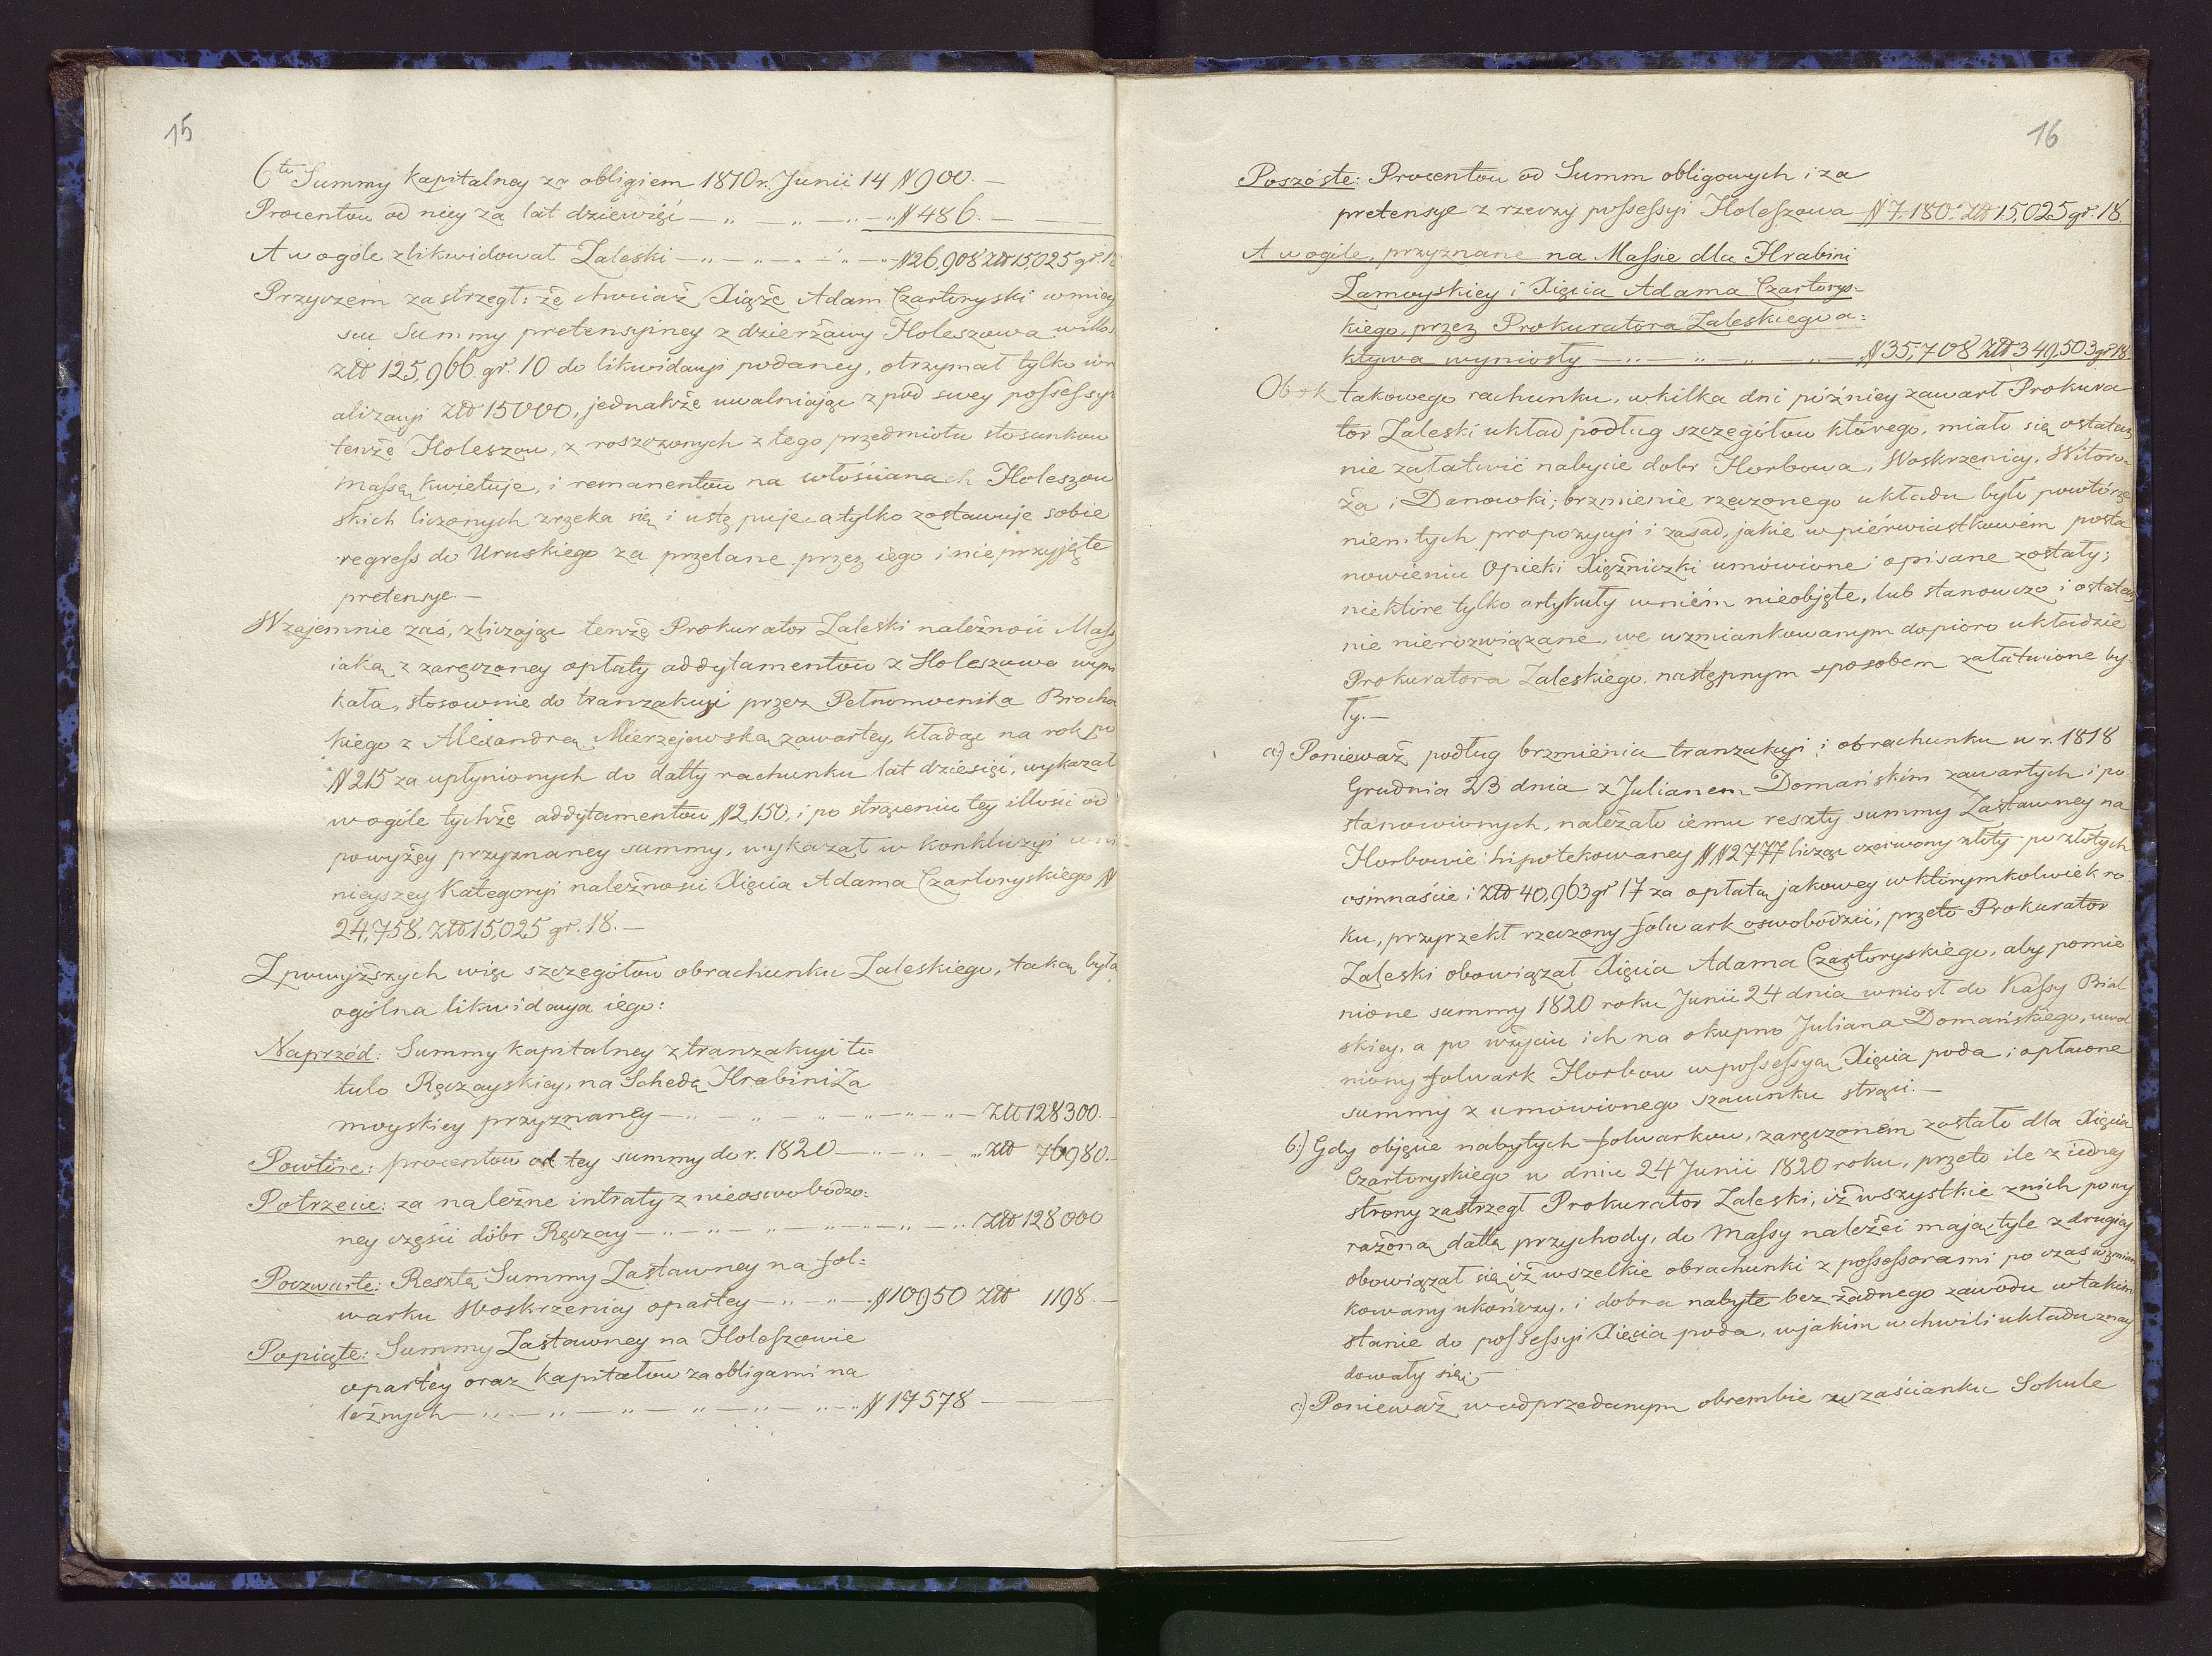 15
6te Summy kapitalney za obligiem 1810 r. Junii 14 # 900. —
Procentow od niey za lat dziewięć — „ — „ — „ — „ # 486. —
A w ogóle zlikwidował Zaleski — „ — „ — „ — „ — # 26,908 Złt 15,025 gr. 18
Przyczem zastrzegł: że chociaż Xiąże Adam Czartoryski w miey
scu Summy pretensyiney z dzierżawy Holeszowa
Złt 125,966. gr. 10 do likwidacyi podaney, otrzymał tylko
alizacyi Złt 15000, jednakże uwalniając z pod swey possessyi
tenże Holeszow, z roszczonych z tego przedmiotu stosunkow
massę kwietuje, i remanentow na włościanach Holeszow
skich liczonych zrzeka się i ustępuje a tylko zostawuje sobie
regress do Uruskiego za przelane przez iego i nie przyjęte
pretensye. —
Wzajemnie zaś, zliczając tenże Prokurator Zaleski należność Massy
iaka z zaręczoney opłaty addytamentow z Holeszowa wyni
kała, stosownie do tranzakcyi przez Pełnomocnika Brocho
kiego z Alexandrą Mierzejewską zawartey, kładąc na rok po
# 215 za upłynionych do datty rachunku lat dziesięć, wykazał
w ogóle tychże addytamentow # 2,150, i po strąceniu tey illości od
powyżey przyznaney summy, wykazał w konkluzyi w ni=
nieyszey Kategoryi należności Xięcia Adama Czartoryskiego #
24,758. Złt 15,025 gr. 18. —
Z powyższych więc szczegółow obrachunku Zaleskiego, taką była
ogólna likwidacya iego:
Naprzód: Summy kapitalney z tranzakcyi ti=
tulo Ręczayskiey, na Schedę Hrabini Za
moyskiey przyznaney — „ — „ — „ — „ — „ — Złt 128300. —
Powtóre: procentow od tey summy do r. 1820 — „ — „ — „ Złt 76980. —
Potrzecie: za należne intraty z nieoswobodzo=
ney części dóbr Ręczay — „ — „ — „ — „ — „ — „ Złt 128000
Poczwarte: Resztą Summy Zastawney na fol=
warku Woskrzenicy opartey — „ — „ — # 10950 Złt 1198. —
Popiąte: Summy Zastawney na Holeszowie
opartey oraz kapitałow za obligami na
leżnych — „ — „ — „ — „ — „ — „ # 17578 —
16
Poszóste: Procentow od Summ obligowych i za
pretensye z rzeczy possessyi Holeszowa # 7180. Złt 15,025 gr. 18.
A w ogóle, przyznane na Massie dla Hrabini
Zamoyskiey i Xięcia Adama Czartorys=
kiego, przez Prokuratora Zaleskiego a=
ktywa wyniosły — „ — „ — „ — „ — # 35,708 Złt 349,503 gr 18.
Obok takowego rachunku, w kilka dni późniey zawarł Prokura
tor Zaleski układ podług szczegółow którego, miało się ostatecz
nie załatwić nabycie dobr Horbowa, Woskrzenicy, Witoro=
ża i Danowki; brzmienie rzeczonego układu było powtórze
niem tych propozycyi i zasad, jakie w pierwiastkowém posta
nowieniu Opieki Xiężniczki umówione i opisane zostały;
niektóre tylko artykuły w niém nieobjęte, lub stanowczo i ostatecz
nie nierozwiązane, we wzmiankowanym dopióro układzie
Prokuratora Zaleskiego, następnym sposobem załatwione by
ły. —
a.) Ponieważ podług brzmienia tranzakcyi i obrachunku w r. 1818
Grudnia 23 dnia z Julianem Domańskim zawartych i po
stanowionych, należało iemu reszty summy Zastawney na
Horbowie hipotekowaney ## 2777 licząc czerwony złoty po złotych
osimnaście i Złt 40,963 gr 17 za opłatą jakowey w którymkolwiek ro
ku, przyrzekł rzeczony folwark oswobodzić, przeto Prokurator
Zaleski obowiązał Xięcia Adama Czartoryskiego, aby pomie
nione summy 1820 roku Junii 24 dnia wniosł do Kassy Bial
skiey, a po wzięciu ich na okupno Juliana Domańskiego, uwol
niony folwark Horbow w possessyą Xięcia poda i opłacone
summy z umówionego szacunku strąci. —
b.) Gdy objęcie nabytych folwarkow, zaręczoném zostało dla Xięcia
Czartoryskiego w dniu 24 Junii 1820 roku, przeto ile z iedney
strony zastrzegł Prokurator Zaleski, iż wszystkie z nich powy
rażoną dattą przychody, do Massy należeć mają, tyle z drugiey
obowiązał się iż wszelkie obrachunki z possessorami po czas wzmian
kowany ukończy, i dobra nabyte bez żadnego zawodu w takim
stanie do possessyi Xięcia poda, w jakim w chwili układu znay
dowały się. —
c.) Ponieważ w odprzedanym obrembie w zaścianku Sokule